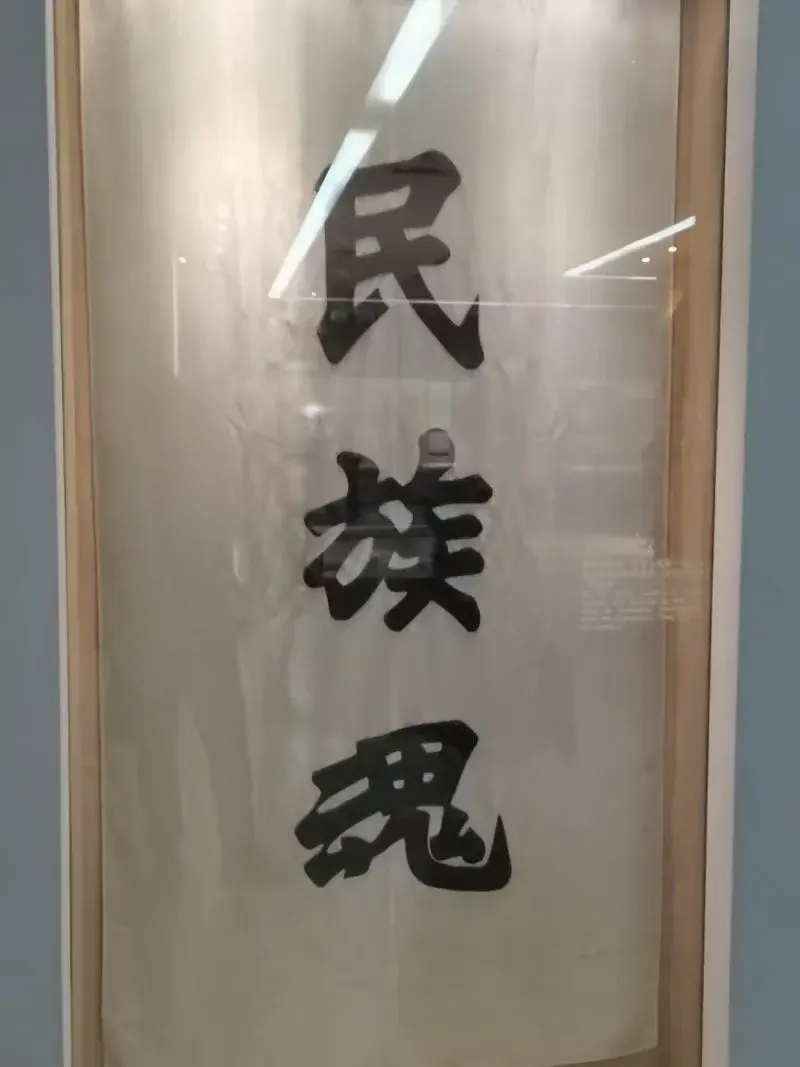 民族魂